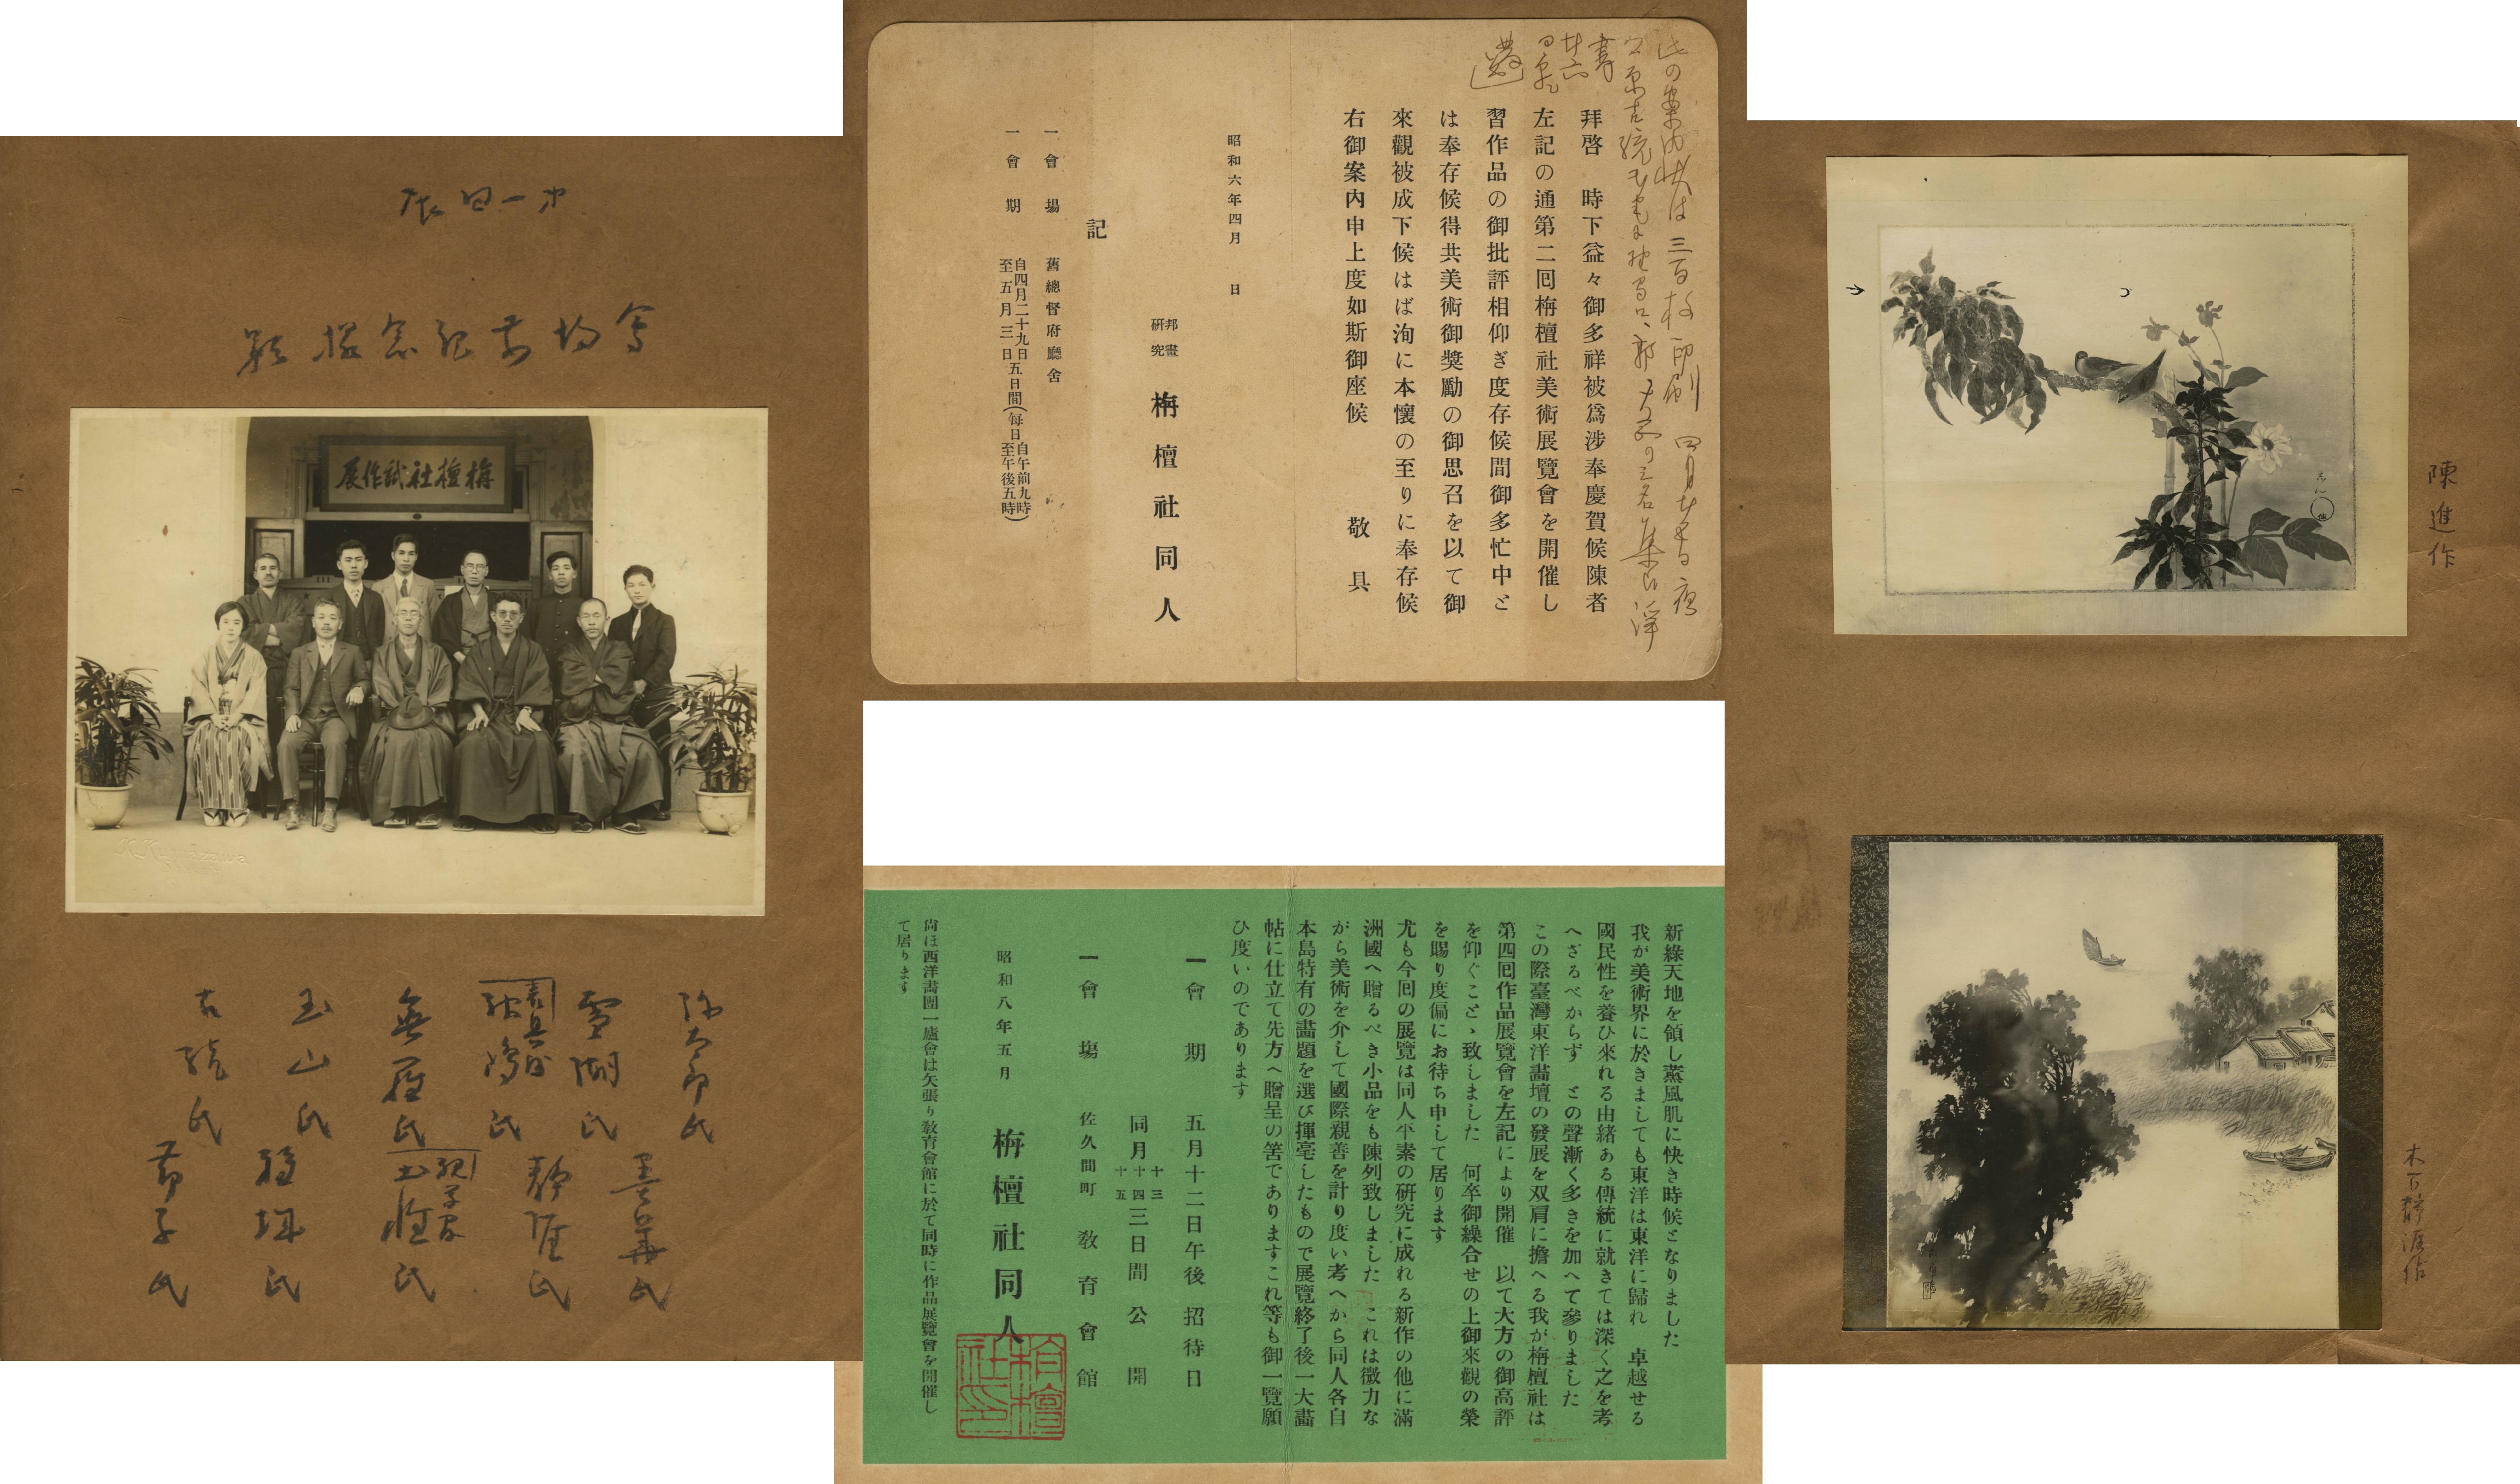 才一回展
會場前記念撮影
栴檀社試作展
弥太郎氏
雪湖氏
氏
無涯氏
玉山氏
古統氏
墨華氏
靜涯氏
氏
氏
節子氏
此の案内狀は三百枚印刷
拜啓 時下益々御多祥被爲涉奉慶賀候陳者
左記の通第二囘栴檀社美術展覽會を開催し
習作品の御批評相仰ぎ度存候間御多忙中と
は奉存候得共美術御獎勵の御思召を以て御
來觀被成下候はば洵に本懷の至りに奉存候
右御案內申上度如斯御座候 敬具
昭和六年四月 日
邦畫研究 栴檀社同人
記
一會場 舊總督府廳舍
一會期 自四月二十九日至五月三日五日間(每日自午前九時至午後五時)
新綠天地を領し薰風肌に快き時候となりました
我が美術界に於きましても東洋は東洋に歸れ 卓越せる
國民性を養ひ來れる由緒ある傳統に就きては深く之を考
へざるべからず との聲漸く多きを加へて參りました
この際臺灣東洋畵壇の發展を双肩に擔へる我が栴檀社は
第四回作品展覽會を左記により開催 以て大方の御高評
を仰ぐことゝ致しました 何卒御繰合せの上御來觀の榮
を賜り度偏にお待ち申して居ります
尤も今回の展覽は同人平素の硏究に成れる新作の他に滿
洲國へ贈るべき小品をも陳列致しました これは微力な
がら美術を介して國際親善を計り度い考へから同人各自
本島特有の畵題を選び揮毫したもので展覽終了後一大畵
帖に仕立て先方へ贈呈の筈でありますこれ等も御一覽願
ひ度いのであります
一會期 五月十二日午後 招待日
同月十三十四十五三日間 公開
一會場 佐久間町 敎育會館
昭和八年五月 栴檀社同人
尙ほ西洋畵團一廬會は矢張り敎育會館に於て同時に作品展覽會を開催し
て居ります
陳進作
木下靜涯作